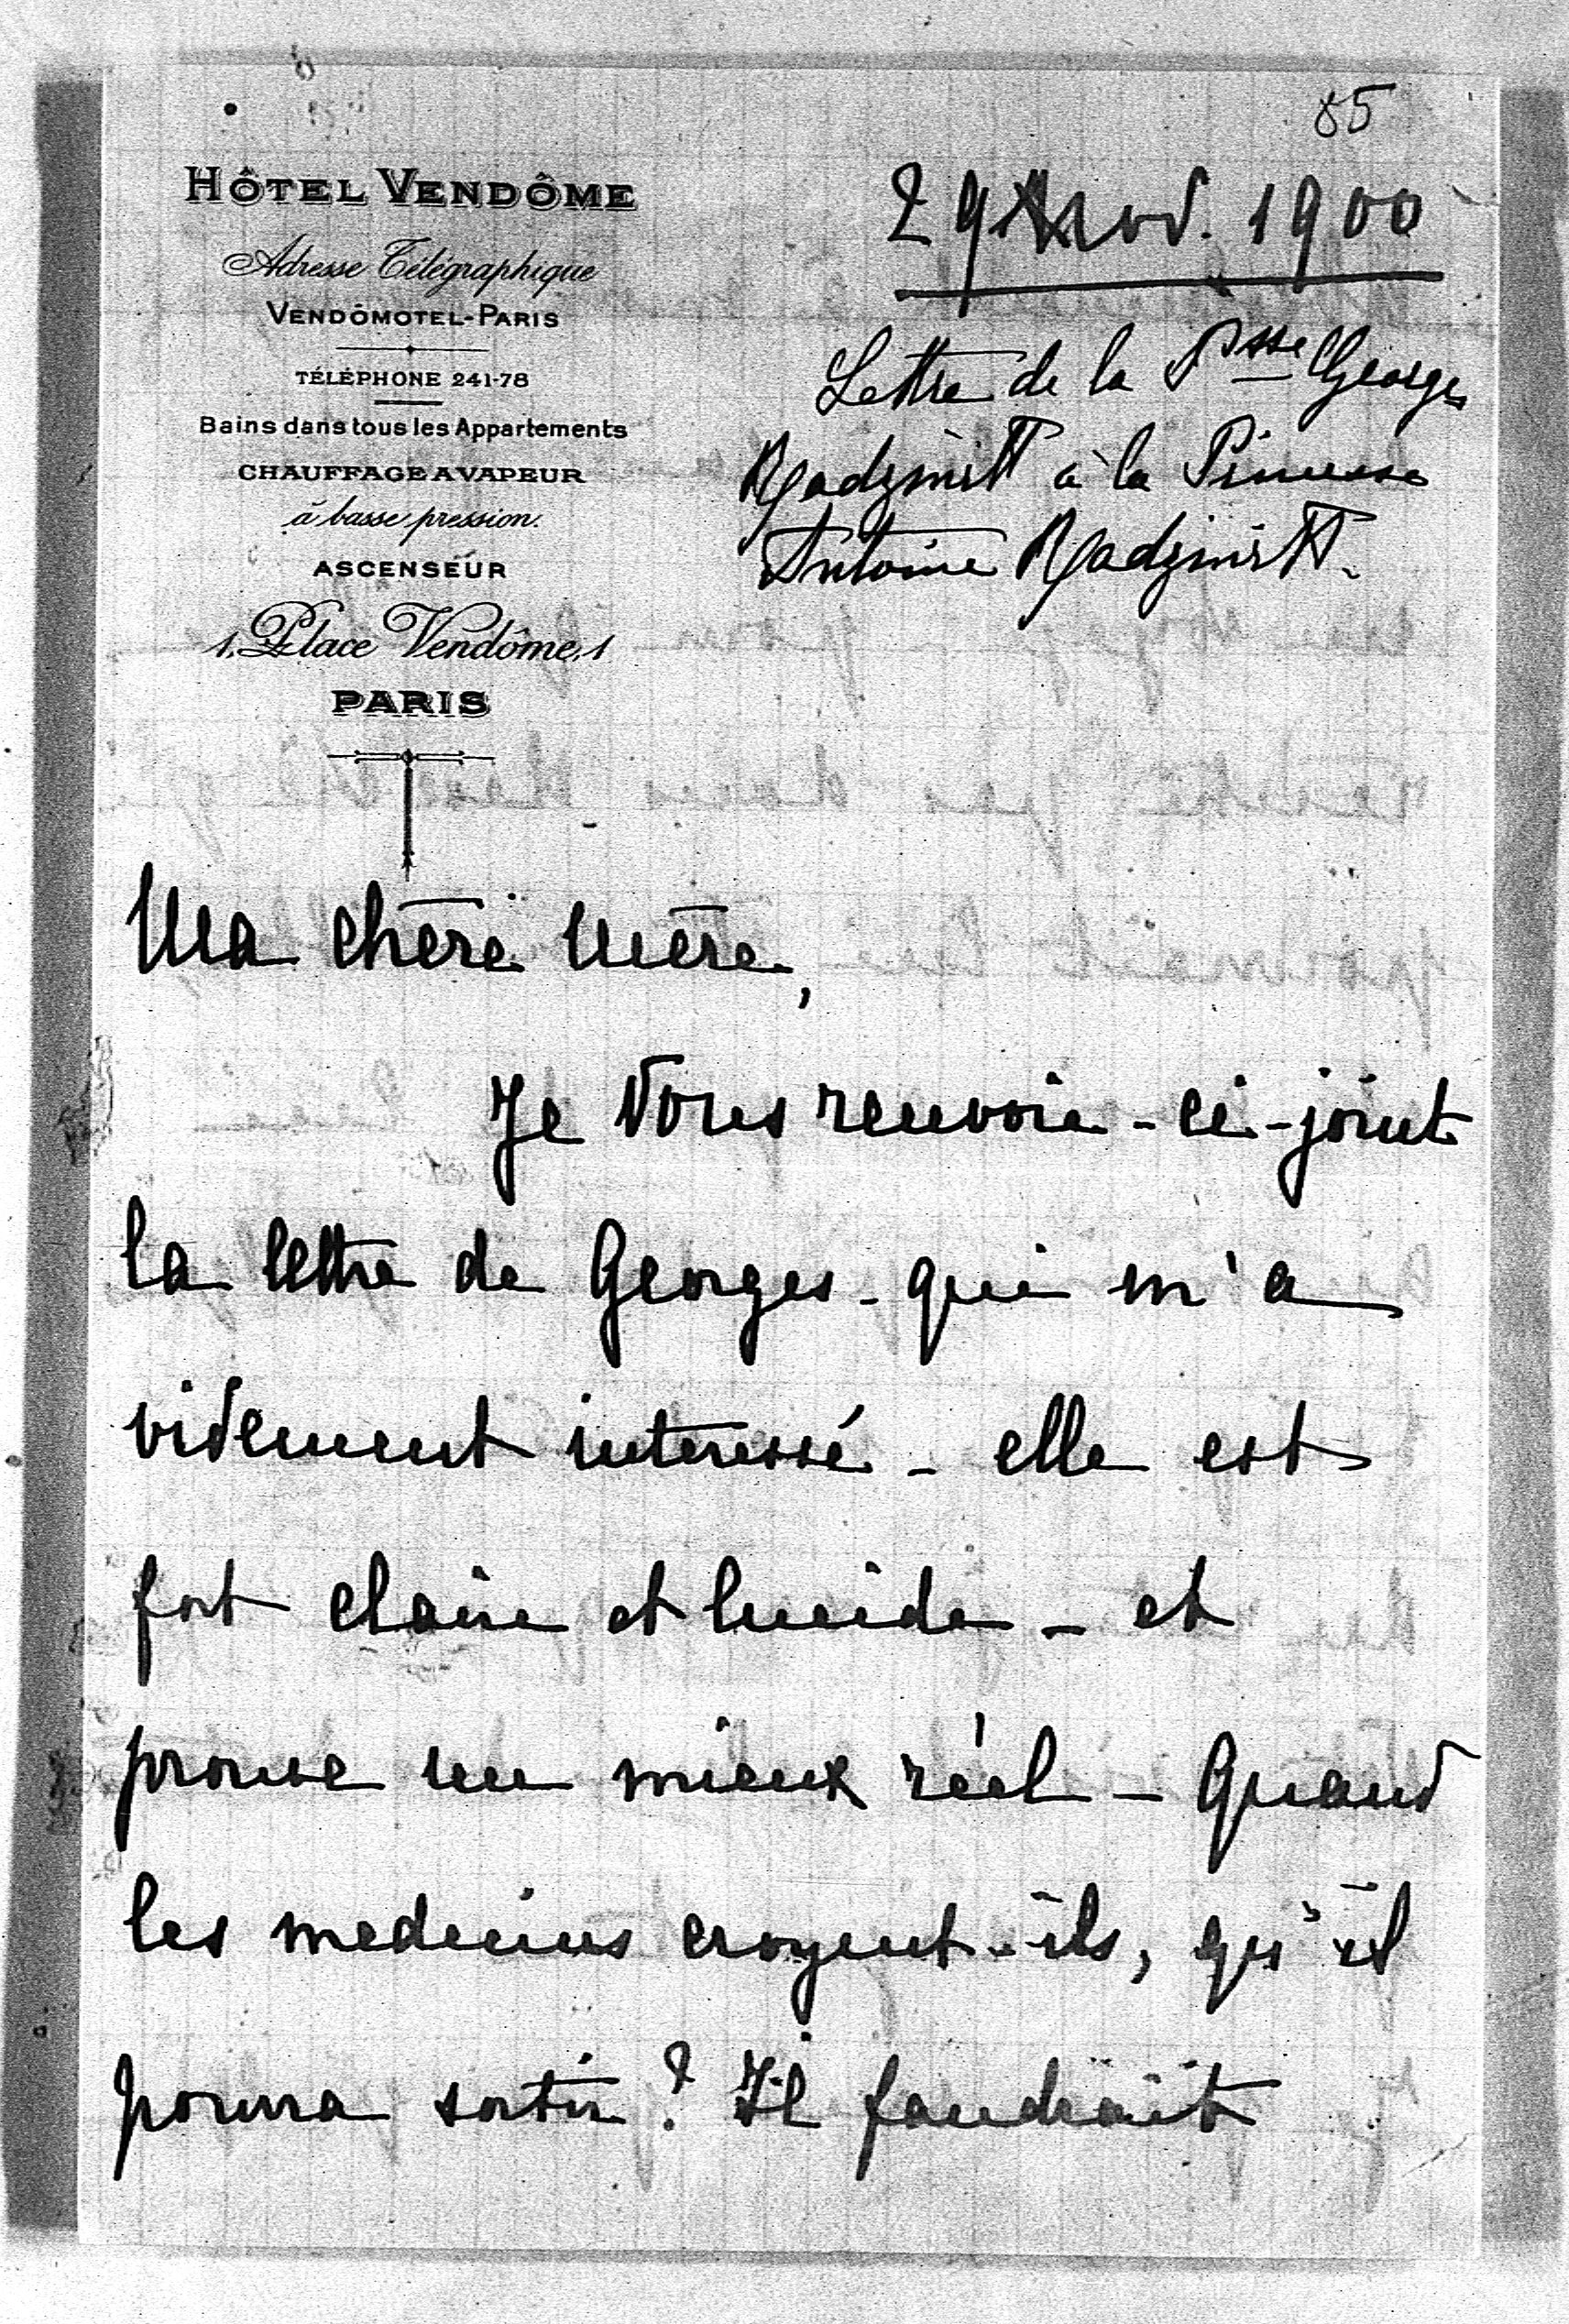 85
HÔTEL VENDÔME
Adresse Télégraphique
VENDÔMOTEL-PARIS
TÉLÉPHONE 241-78
Bains dans tous les Appartements
CHAUFFAGE A VAPEUR
à basse pression.
ASCENSEUR
1, Place Vendôme, 1
PARIS
29 Nov. 1900
Lettre de la Psse Georges
Radziwill à la Princesse
Antoine Radziwill.
Ma chère Mère,
Je Vous renvoie - ci-joint
la lettre de Georges - qui m'a
vivement interessé - elle est
fort claire et lucide - et
prouve un mieux réel - Quand
les medecins croyent-ils, qu'il
pourra sortir? Il faudrait